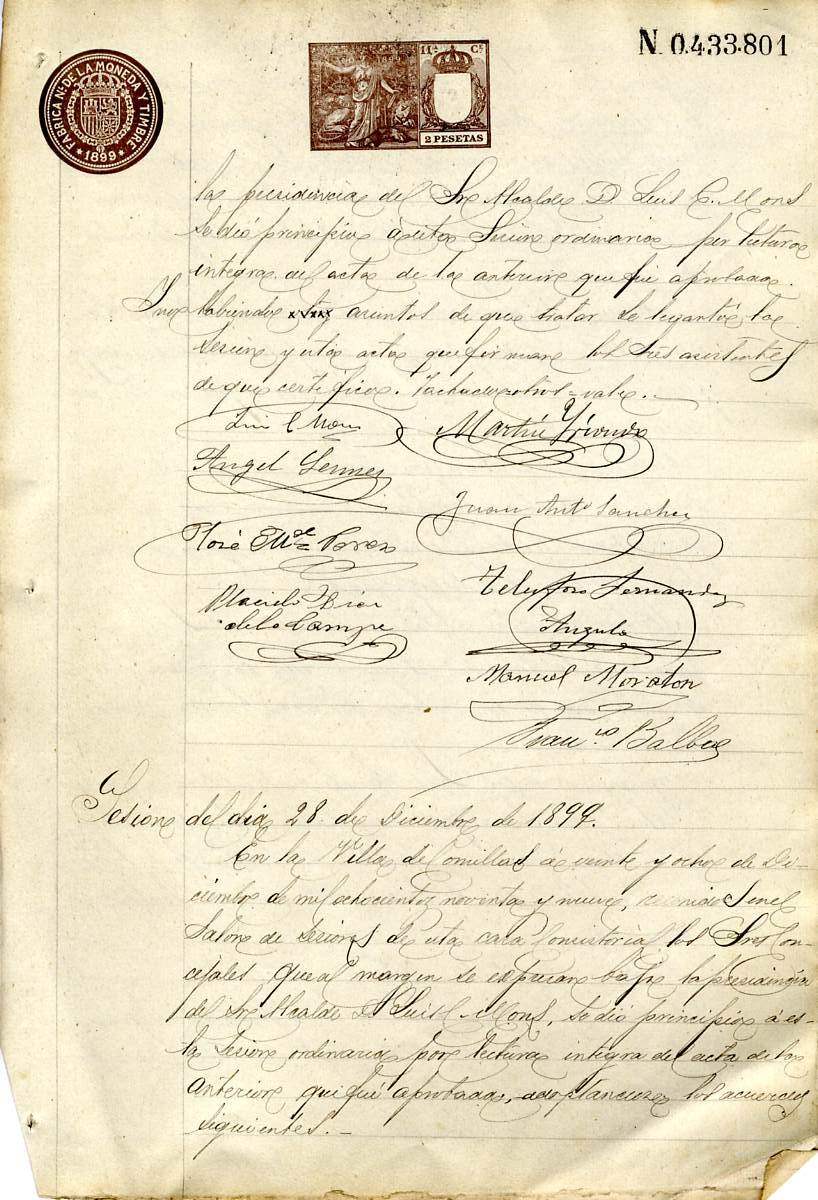 FABRICA Nˡ. DE LA MONEDA Y TIMBRE
*1899*
11ª Cˢ
2 PESETAS
N. 0.433.801
la presidencia del Sr Alcalde D. Luis C. Mons
se dió principio á esta Sesion ordinaria por lectura
integra del acta de la anterior que fué aprobada.
Y no habiendo asuntos de que tratar se levantó la
sesion y esta acta que firman los Sres asistentes
de que certifico. Tachado = vale.
Luis C Mons
Martin
Angel
Juan Antº Sanchez
José Mª Perez
Telesforo Fernandez
Placido Diaz
de la Campa
Angulo
Manuel Moraton
Franᶜº Balbas
Sesion del dia 28 de Diciembre de 1899.
En la Villa de Comillas á veinte y ocho de Di-
ciembre de mil ochocientos noventa y nueve, reunidos en el
Salon de Sesiones de esta casa Consistorial los Sres Con-
cejales que al margen se expresan bajo la presidencia
del Sr Alcalde D. Luis C. Mons, se dió principio á es-
ta sesion ordinaria por lectura integra del acta de la
anterior que fué aprobada, adoptandose los acuerdos
siguientes.-